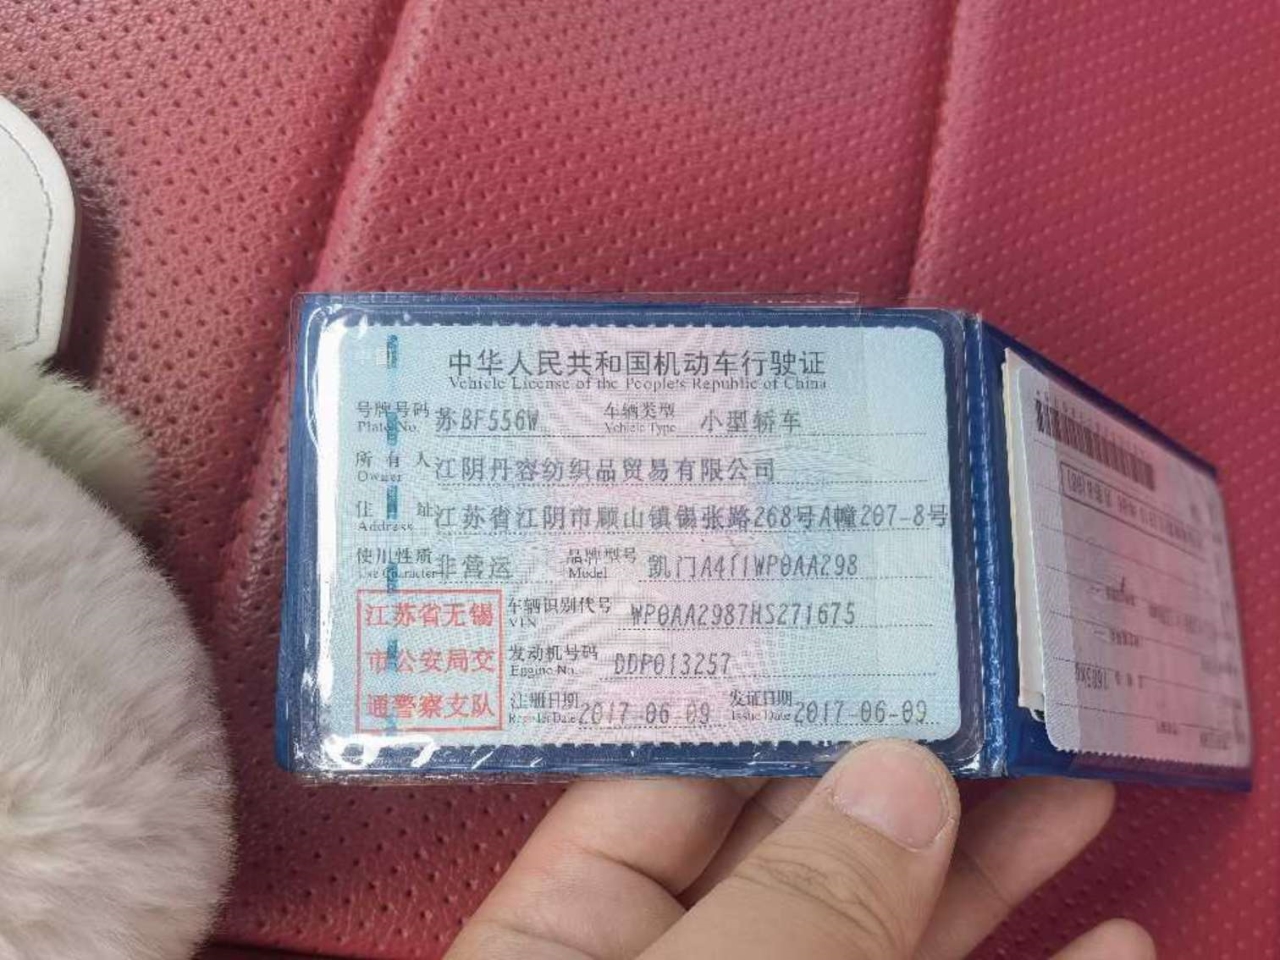 中华人民共和国机动车行驶证
Vehicle License of the People's Republic of China
号牌号码 苏BF556W 车辆类型 小型轿车
Plate No. Vehicle Type
所有人 江阴丹容纺织品贸易有限公司
Owner
住址 江苏省江阴市顾山镇锡张路268号A幢207-8号
Address
使用性质 非营运 品牌型号 凯门A4111WP0AA298
Use Character Model
江苏省无锡
市公安局交
通警察支队
车辆识别代号 WP0AA2987HS271675
VIN
发动机号码 DDP013257
Engine No.
注册日期 2017-06-09 发证日期 2017-06-09
Register Date Issue Date